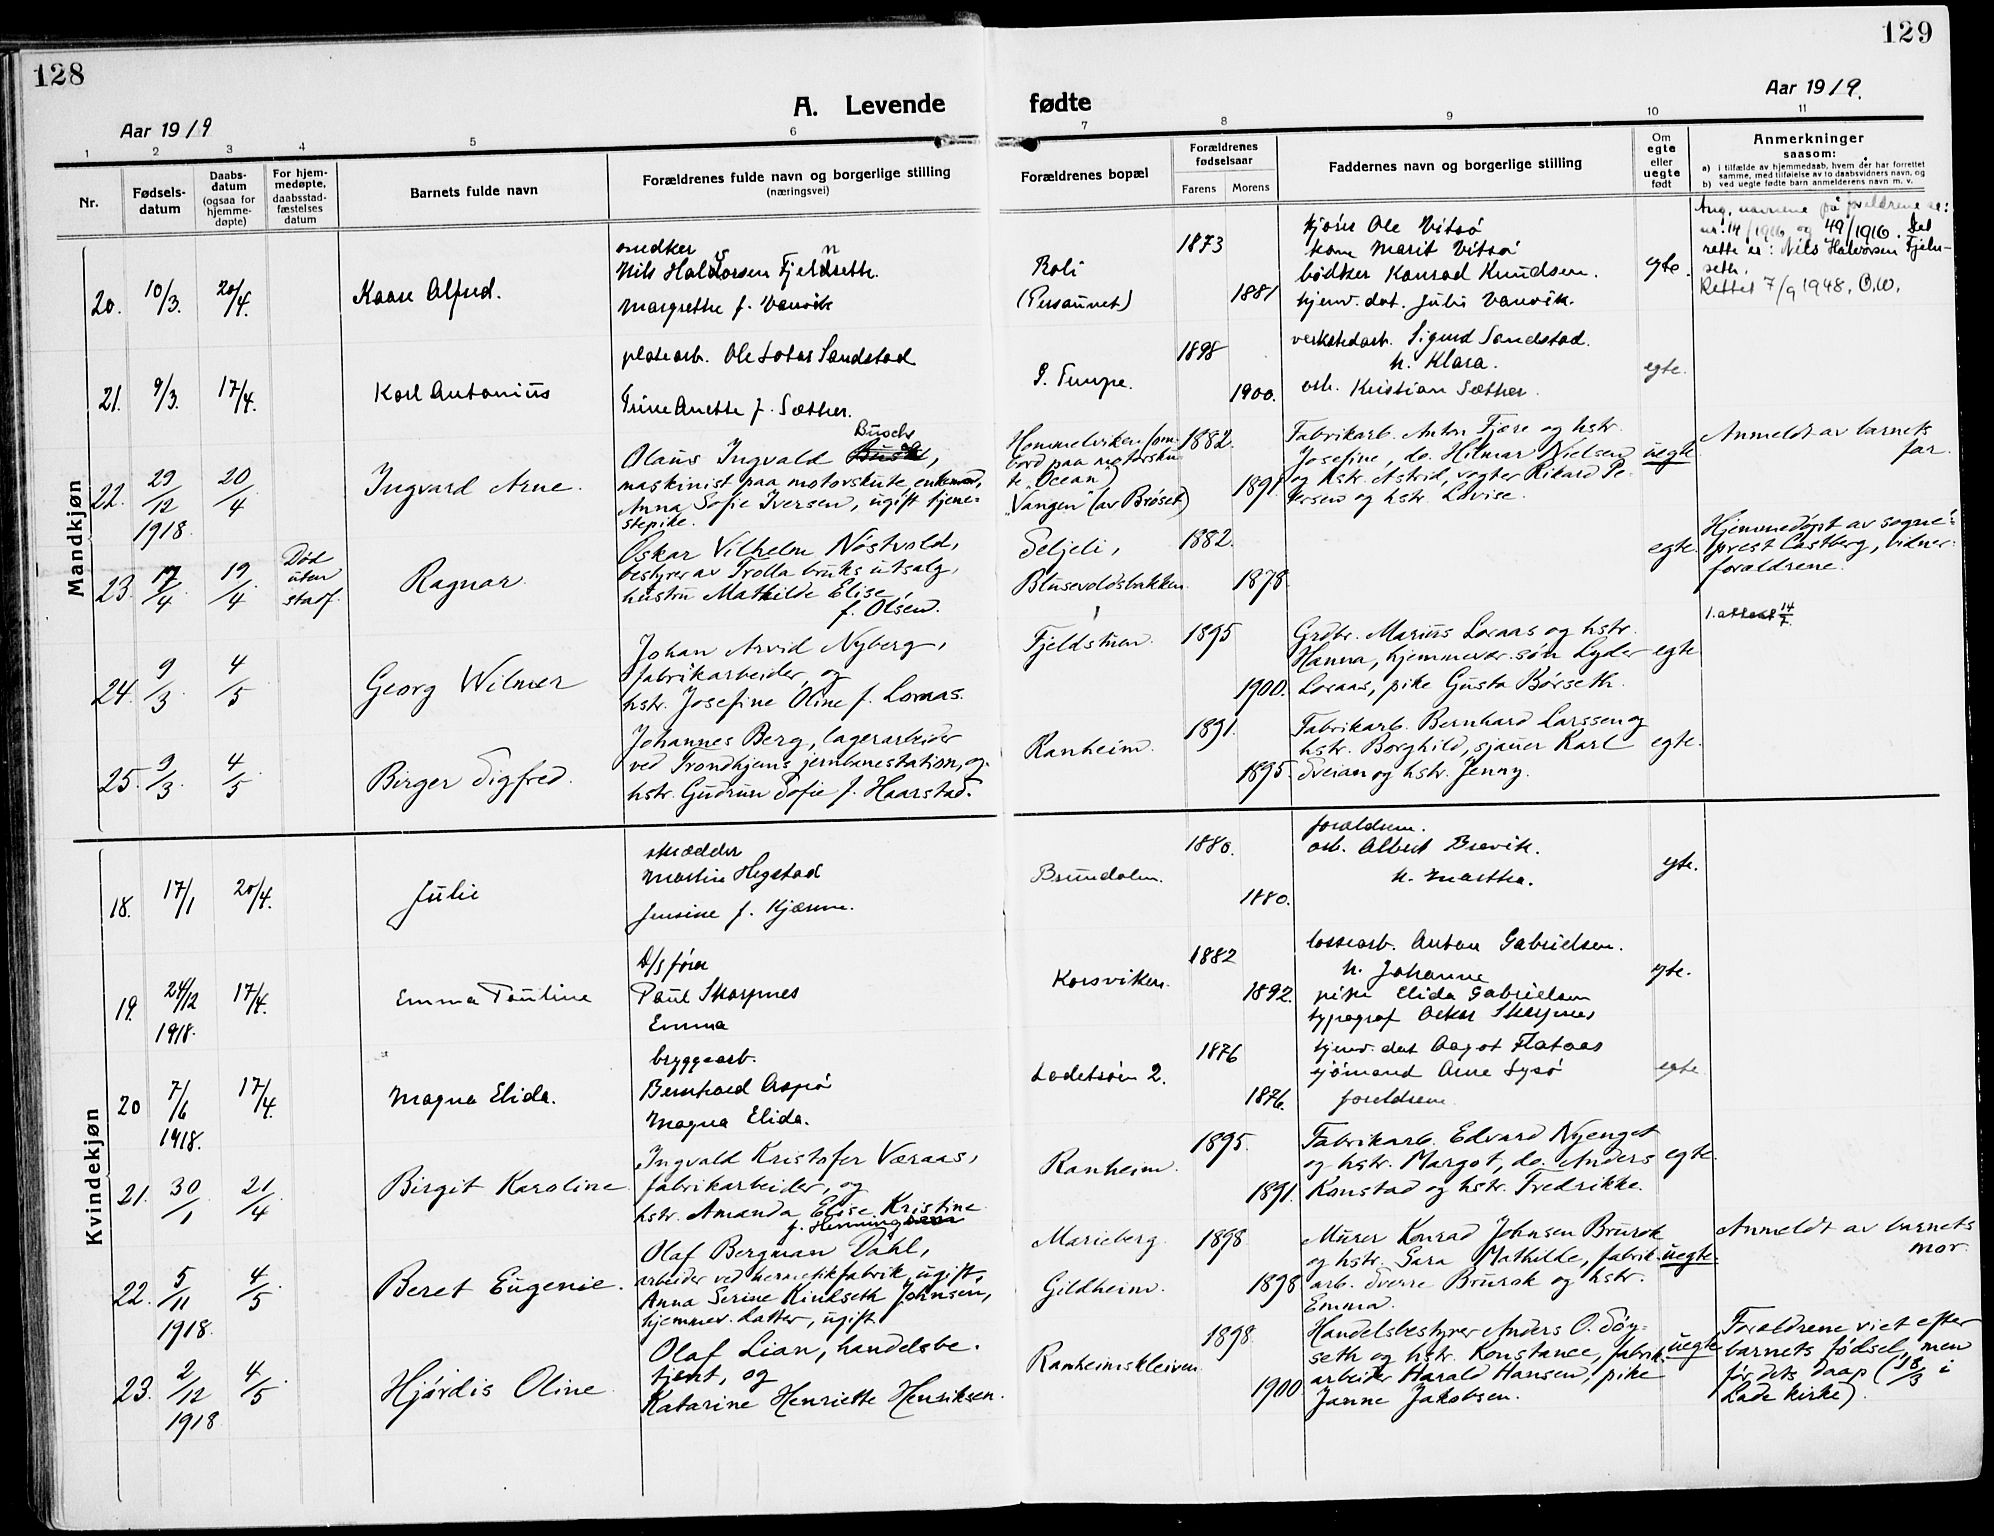 128
129
A. Levende fødte
Aar 1919
Aar 1919.
1 2 3 4 5 6 7 8 9 10 11
Nr.
Fødsels-
datum
Daabs-
datum
(ogsaa for
hjemme-
døpte)
For hjem-
medøpte,
daabsstad-
fæstelses
datum
Barnets fulde navn
Forældrenes fulde navn og borgerlige stilling
(næringsvei)
Forældrenes bopæl
Forældrenes
fødselsaar
Farens Morens
Faddernes navn og borgerlige stilling
Om
egte
eller
uegte
født
Anmerkninger
saasom:
a) i tilfælde av hjemmedaab, hvem der har forrettet
samme, med tilføielse av to daabsvidners navn, og
b) ved uegte fødte barn anmelderens navn m. v.
Mandkjøn
20. 10/3. 20/4. Kaare Alfred.
snedker
Nils Halvorsen Fjelnseth.
Margrethe f. Vanvik
Roli
(Persaunet)
1873
1881
hjørn Ole Vitsø
kone Marit Vitsø
bødker Konrad Knudsen.
hjemv. dat. Julie Vanvik.
egte.
Ang. navnene på foreldrene se:
nr. 14/1916 og 49/1916. Det
rette er: Nils Halvorsen Fjeln-
seth.
Rettet 7/9 1948. O.W.
21. 9/3. 17/4. Karl Antonius
platearb. Ole Lotas Sandstad
Trine Anette f. Sæther.
S. Tempe.
1898
1900.
verkstedarb. Sigurd Sandstad.
h. Klara.
arb. Kristian Sæther.
egte.
22. 29/12 1918 20/4 Ingvard Arne.
Olaus Ingvald Busch,
maskinist paa motorskute, enkemand,
Anna Sofie Iversen, ugift tjene-
stepike.
Hommelviken (om-
bord paa motorsku-
te „Ocean")
„Vangen" (av Brøset)
1882.
1891
Fabrikarb. Anton Fjære og hstr.
Josefine, do. Hilmar Nielsen
og hstr. Astrid, vogter Rikard Pe-
tersen og hstr. Lovise.
uegte
Anmeldt av barnets
far.
23. 17/4 19/4 Død
uten
stadf.
Ragnar.
Oskar Vilhelm Nøstvold,
bestyrer av Trolla bruks utsalg,
hustru Mathilde Elise,
f. Olsen.
Seljeli,
Blusevoldsbakken
1882.
1878.
egte.
Hjemmedøpt av sogne-
prest Castberg, vidner:
forældrene.
24. 9/3 4/5 Georg Wilmer
Johan Arvid Nyberg,
fabrikarbeider, og
hstr. Josefine Oline f. Loraas.
Fjeldstuen.
1895
1900.
Grdbr. Marius Loraas og hstr.
Hanna, hjemmevær. søn Lyder
Loraas, pike Gusta Børseth.
egte
1. attest 14/7
25. 9/3 4/5 Birger Sigfred.
Johannes Berg, lagerarbeider
ved Trondhjems jernbanestation, og
hstr. Gudrun Sofie f. Haarstad.
Ranheim.
1891.
1895.
Fabrikarb. Bernhard Larssen og
hstr. Borghild, sjauer Karl
Sveian og hstr. Jenny.
egte.
Kvindekjøn
18. 17/1 20/4. Julie
skrædder
Martin Hegstad
Jensine f. Kjærem.
Brundalen.
1880.
1880.
forældrene.
arb. Albert Brevik.
h. Martha.
egte.
19. 24/12 1918. 17/4. Emma Pauline
D/S fører
Paul Skarpnes
Emma
Korsviken.
1882
1892.
lossearb. Anton Gabrielsen.
h. Johanne
pike Elida Gabrielsen
typograf Oskar Skarpnes
egte.
20 7/6 1918. 17/4. Magna Elida.
bryggearb.
Bernhard Aspø
Magna Elida.
Ladetsøen 2.
1876
1876.
hjemv. dat Aagot Flataas
sjømand Arne Sysø
foreldrene
egte
21. 30/1 21/4 Birgit Karoline
Ingvald Kristofer Væraas,
fabrikarbeider, og
hstr. Amanda Elise Kristine
f. Henningsen
Ranheim.
1895.
1891.
Fabrikarb. Edvard Nyenget
og hstr. Margot, do. Anders
Konstad og hstr. Fredrikke.
egte.
22. 5/11 1918. 4/5 Beret Eugenie.
Olaf Bergman Dahl,
arbeider ved hermetikfabrik, ugift,
Anna Serine Kindseth Johnsen,
hjemmev. datter, ugift
Marieberg.
Gildheim.
1898
1898
Murer Konrad Johnsen Brurok
og hstr. Sara Mathilde, fabrik-
arb. Sverre Brurok og hstr.
Emma.
uegte.
Anmeldt av barnets
mor.
23. 2/12 1918 4/5. Hjørdis Oline
Olaf Lian, handelsbe-
tjent, og
Katarine Henriette Henriksen.
Ranheimskleiven
1898.
1900
Handelsbestyrer Anders O. Søy-
seth og hstr. Konstance, fabrik-
arbeider Harald Hansen, pike
Janne Jakobsen.
uegte
Forældrene viet efter
barnets fødsel, men
før dets daap (18/3 i
Lade kirke).